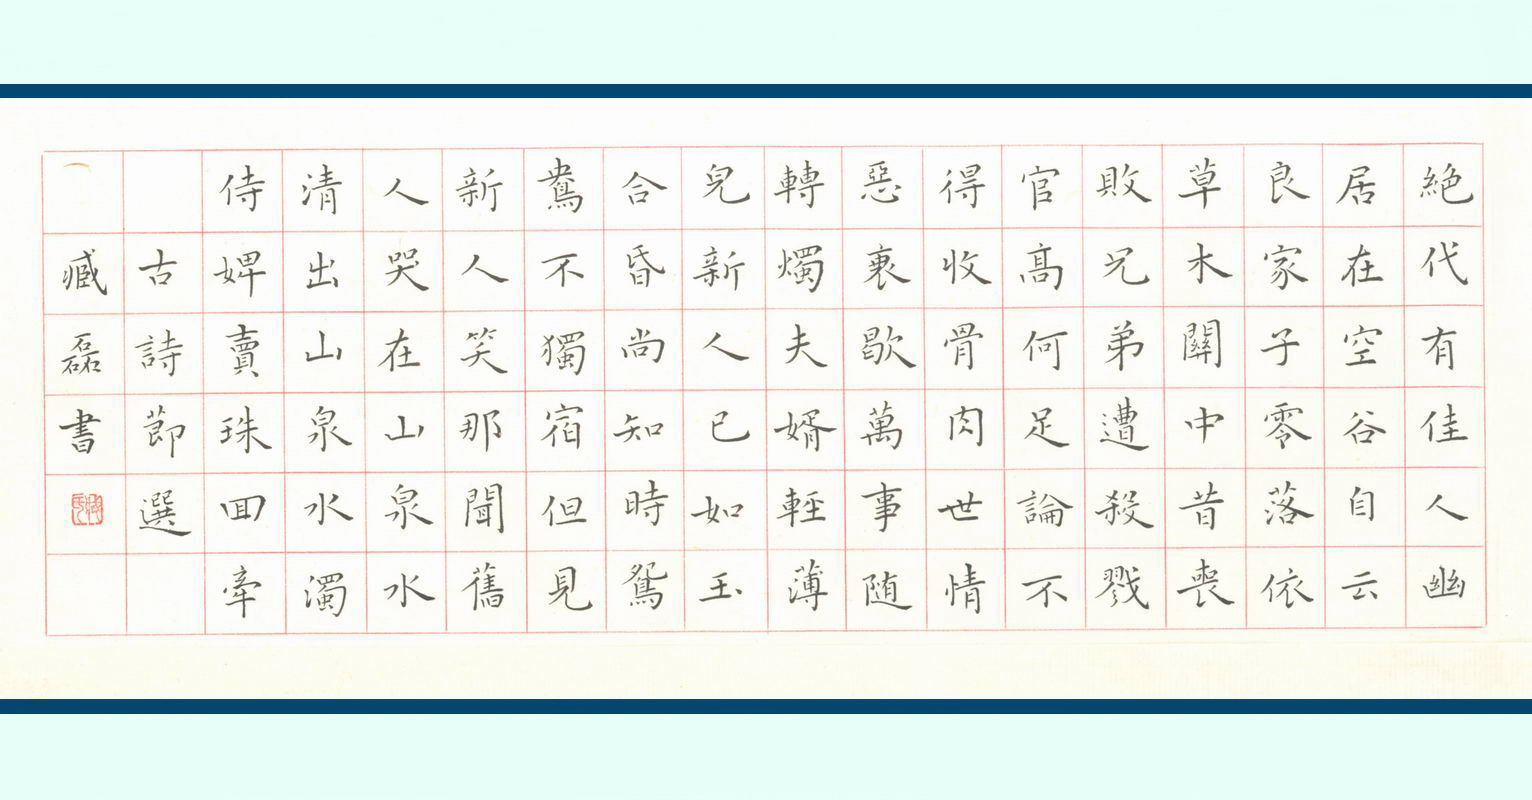 絶代有佳人幽
居在空谷自云
良家子零落依
草木關中昔喪
敗兄弟遭殺戮
官髙何足論不
得收骨肉世情
惡衰歇萬事随
轉燭夫婿輕薄
兒新人已如玉
合昏尚知時鴛
鴦不獨宿但見
新人笑那聞舊
人哭在山泉水
清出山泉水濁
侍婢賣珠囬牽
古詩莭選
臧磊書